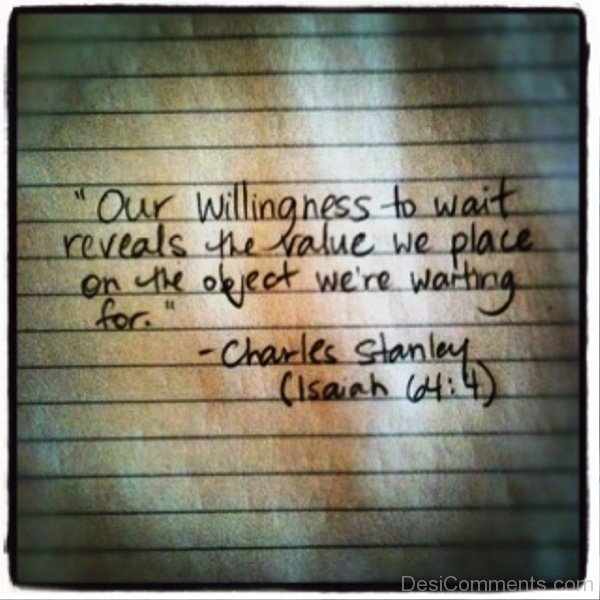 "Our willingness to wait
reveals the value we place
on the object we're waiting
for."
- Charles Stanley
(Isaiah 64:4)
DesiComments.com